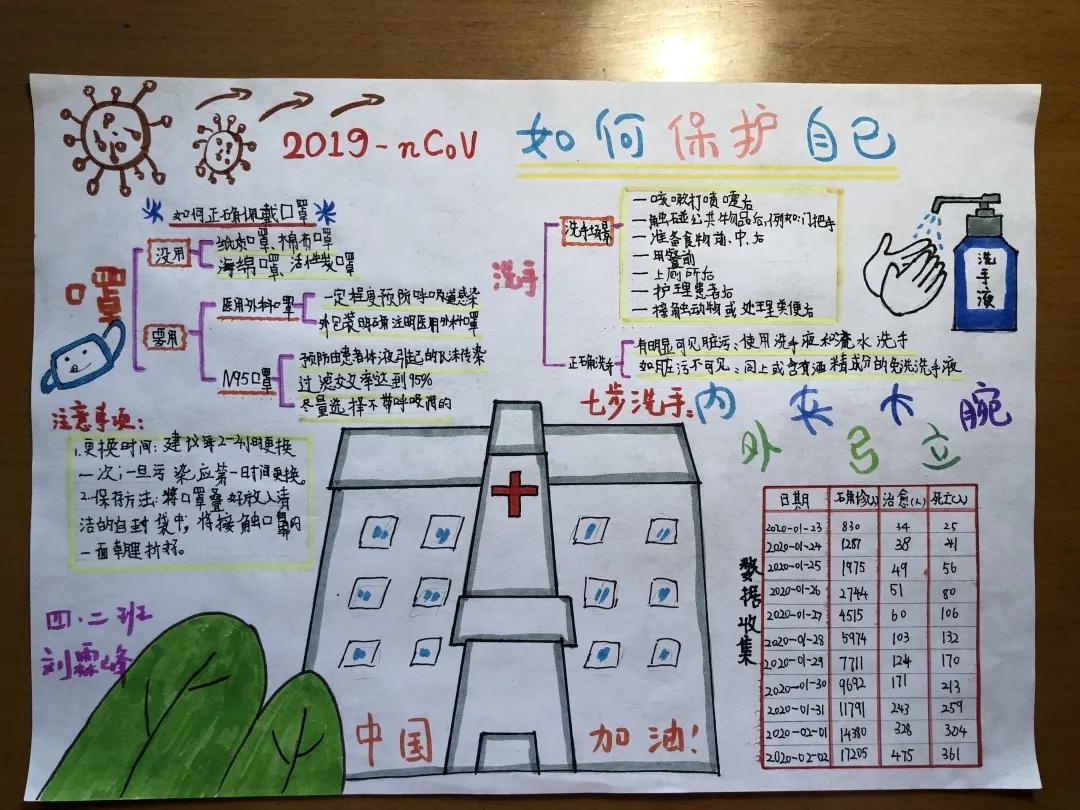 2019-nCoV
如何保护自己
如何正确佩戴口罩
口罩
没用
纸口罩、棉布口罩
海绵口罩、活性炭口罩
要用
医用外科口罩
一定程度预防呼吸道感染
外包装明确注明医用外科口罩
N95口罩
预防由患者体液引起的飞沫传染
过滤效率达到95%
尽量选择不带呼吸阀的
注意事项:
1.更换时间:建议每2-4小时更换
一次;一旦污染,应第一时间更换。
2.保存方法:将口罩叠好放入清
洁的自封袋中,将接触口鼻的
一面朝里折好。
四.二班
刘霖峰
洗手
洗手场景
一咳嗽打喷嚏后
一触碰公共物品后,例如:门把手
一准备食物前、中、后
一用餐前
一上厕所后
一护理患者后
一接触动物或处理粪便后
正确洗手
有明显可见脏污:使用洗手液和流水洗手
如脏污不可见:同上或含有酒精成分的免洗洗手液
洗手液
七步洗手:内 夹 大 腕
外 弓 立
数据收集
日期 确诊(人) 治愈(人) 死亡(人)
2020-01-23 830 34 25
2020-01-24 1287 38 41
2020-01-25 1975 49 56
2020-01-26 2744 51 80
2020-01-27 4515 60 106
2020-01-28 5974 103 132
2020-01-29 7711 124 170
2020-01-30 9692 171 213
2020-01-31 11791 243 259
2020-02-01 14380 328 304
2020-02-02 17205 475 361
中国 加油!